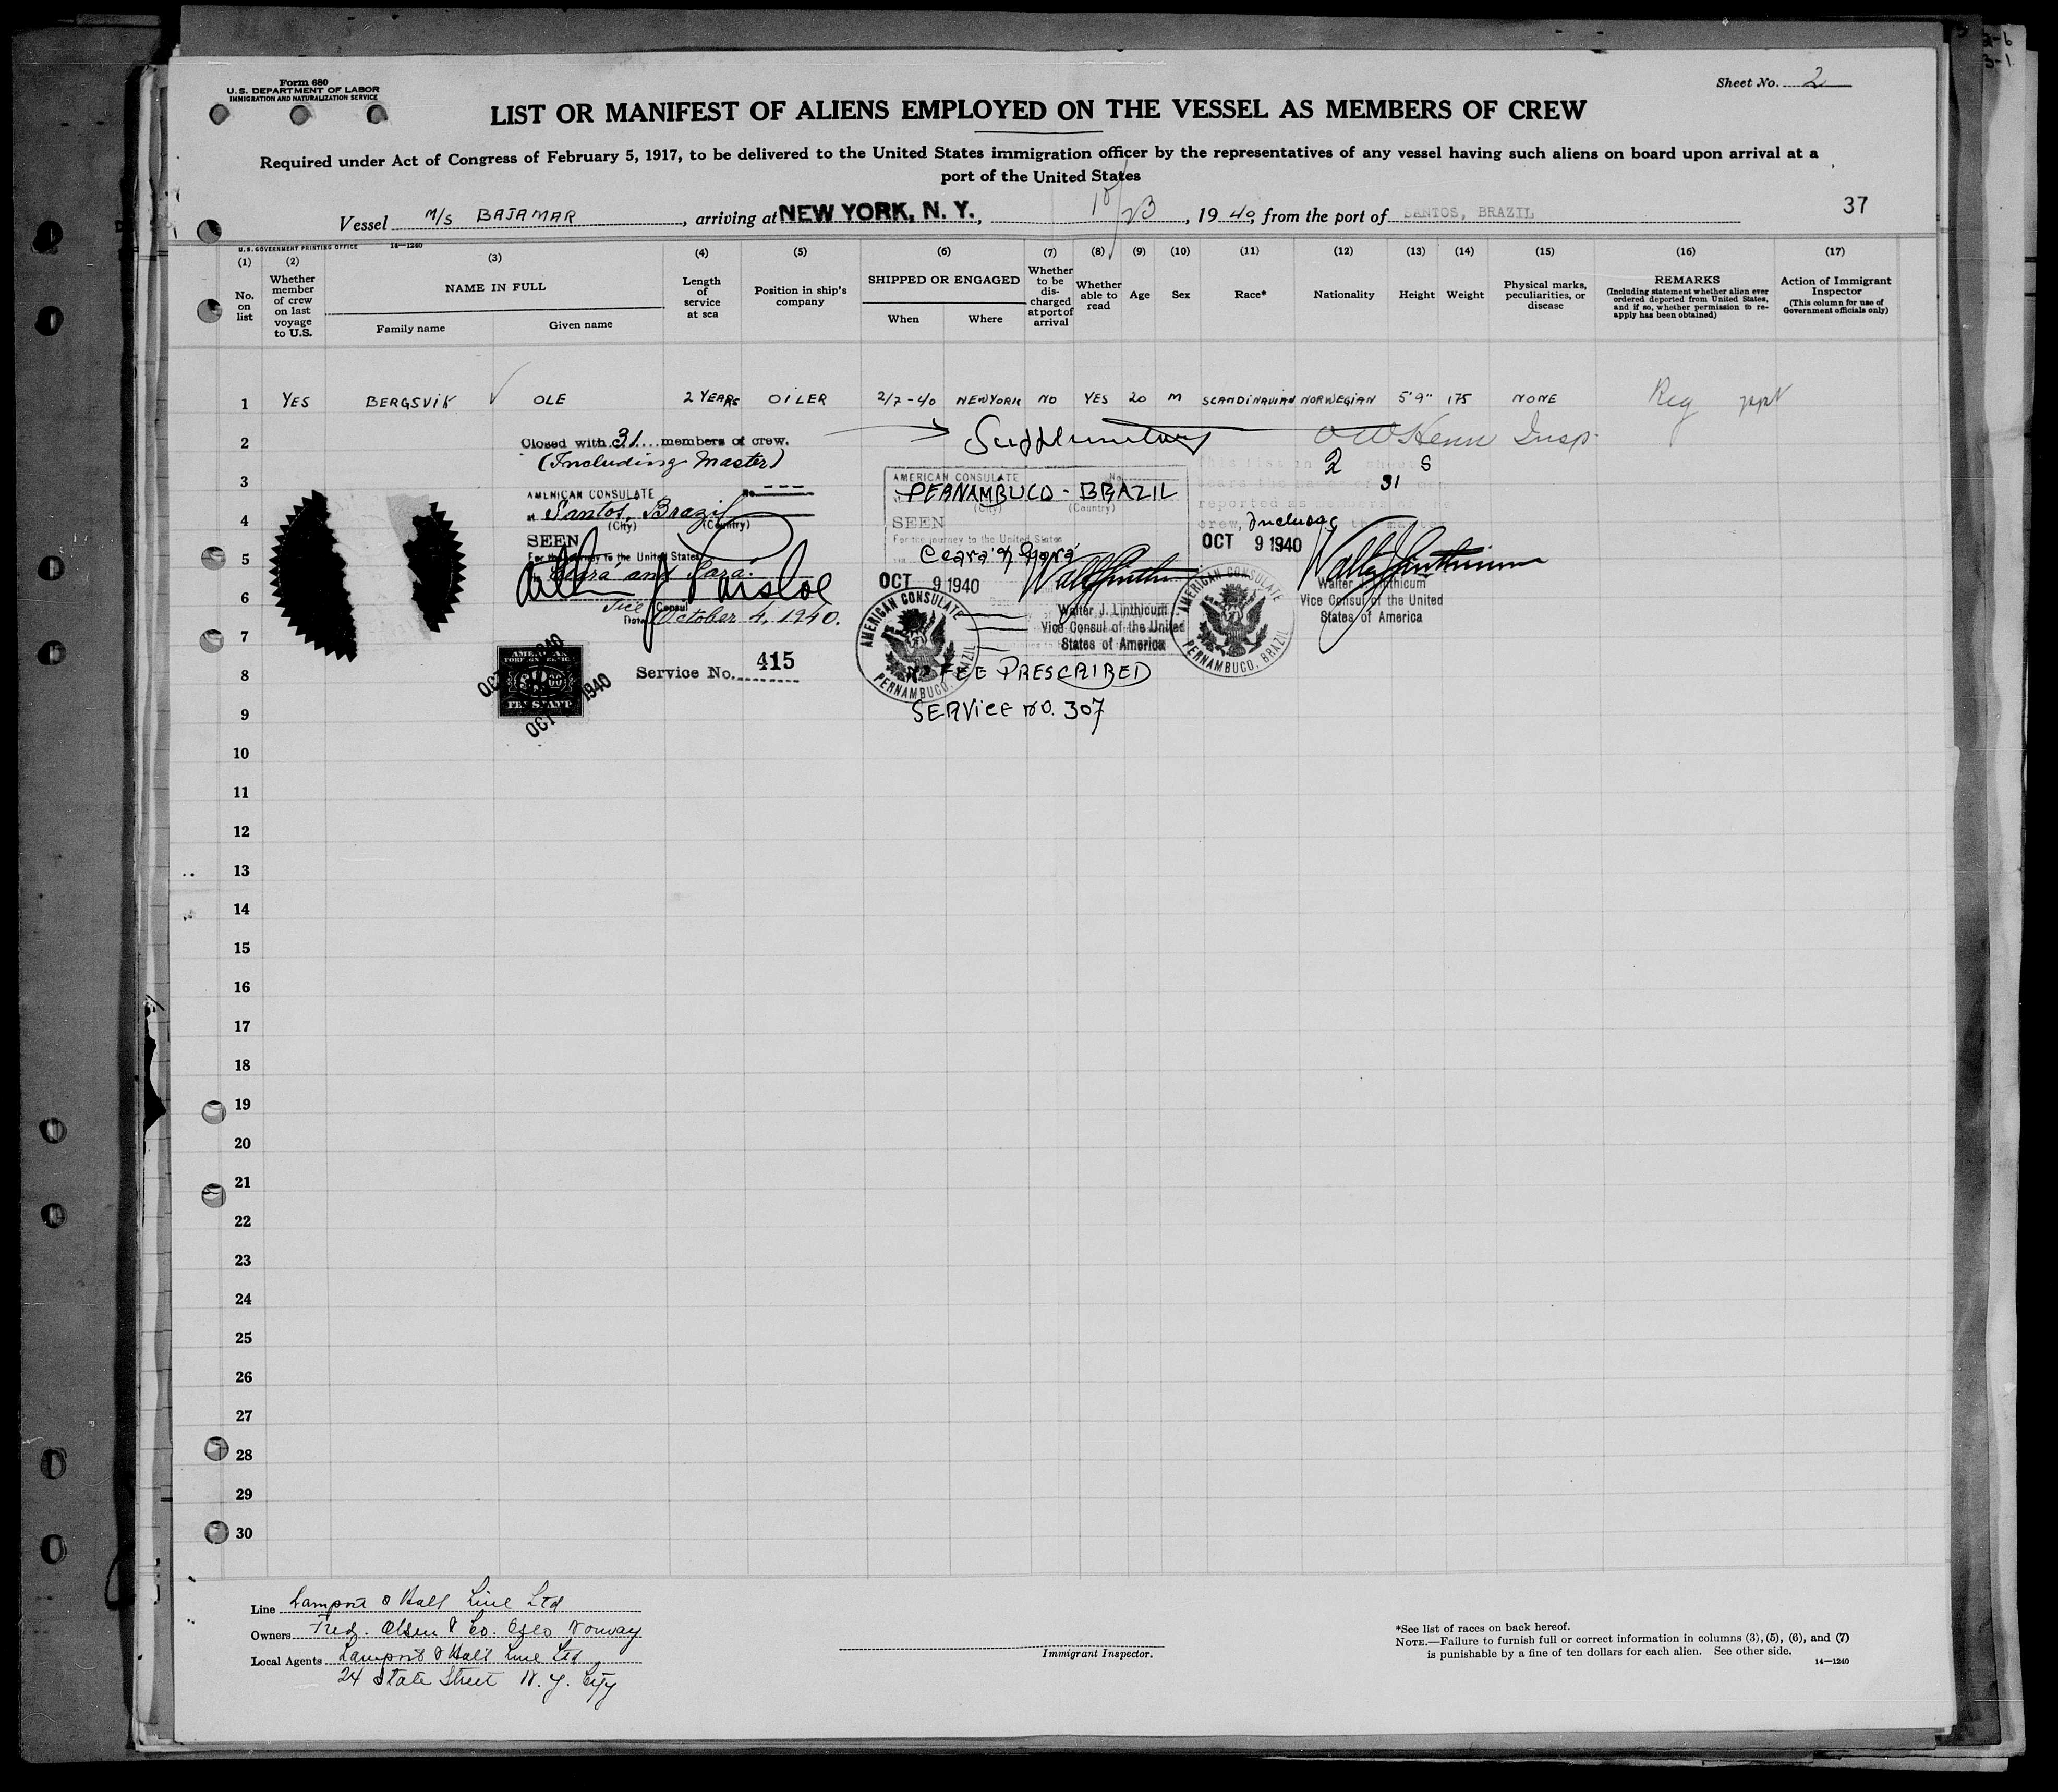 Form 680
U. S. DEPARTMENT OF LABOR
IMMIGRATION AND NATURALIZATION SERVICE
Sheet No. 2
LIST OR MANIFEST OF ALIENS EMPLOYED ON THE VESSEL AS MEMBERS OF CREW
Required under Act of Congress of February 5, 1917, to be delivered to the United States immigration officer by the representatives of any vessel having such aliens on board upon arrival at a
port of the United States
Vessel M/S BAJAMAR, arriving at NEW YORK, N. Y., 10/23, 1940, from the port of SANTOS, BRAZIL
37
U. S. GOVERNMENT PRINTING OFFICE 14—1240
(1) No. on list
(2) Whether member of crew on last voyage to U.S.
(3) NAME IN FULL Family name Given name
(4) Length of service at sea
(5) Position in ship's company
(6) SHIPPED OR ENGAGED When Where
(7) Whether to be discharged at port of arrival
(8) Whether able to read
(9) Age
(10) Sex
(11) Race*
(12) Nationality
(13) Height
(14) Weight
(15) Physical marks, peculiarities, or disease
(16) REMARKS (Including statement whether alien ever ordered deported from United States, and if so, whether permission to reapply has been obtained)
(17) Action of Immigrant Inspector (This column for use of Government officials only)
1 YES BERGSVIK OLE 2 YEARS OILER 2/7-40 NEWYORK NO YES 20 M SCANDINAVIAN NORWEGIAN 5'9" 175 NONE Reg ppt
2 Closed with 31 members of crew. Supplementary Insp.
(Including Master)
2 sheets
3
31
AMERICAN CONSULATE No. ---
at Santos, Brazil
(City) (Country)
SEEN
For the journey to the United States
Ceará and Pará.
Vice Consul
Date October 4, 1940.
Service No. 415
AMERICAN CONSULATE No.
PERNAMBUCO - BRAZIL
(City) (Country)
SEEN
For the journey to the United States
Ceara & Para
OCT 9 1940
Walter J. Linthicum
Vice Consul of the United
States of America
AMERICAN CONSULATE
PERNAMBUCO, BRAZIL
NO FEE PRESCRIBED
SERVICE NO. 307
reported as members of the
crew, inclusive
OCT 9 1940
AMERICAN CONSULATE
PERNAMBUCO, BRAZIL
Walter J. Linthicum
Vice Consul of the United
States of America
AMERICAN
FOREIGN SERVICE
FEE STAMP
OCT 1940
4
5
6
7
8
9
10
11
12
13
14
15
16
17
18
19
20
21
22
23
24
25
26
27
28
29
30
Line Lamport & Holt Line Ltd
Owners Fred. Olsen & Co. Oslo Norway
Local Agents Lamport & Holt Line Ltd
24 State Street N. Y. City
Immigrant Inspector.
*See list of races on back hereof.
NOTE.—Failure to furnish full or correct information in columns (3), (5), (6), and (7)
is punishable by a fine of ten dollars for each alien. See other side.
14—1240